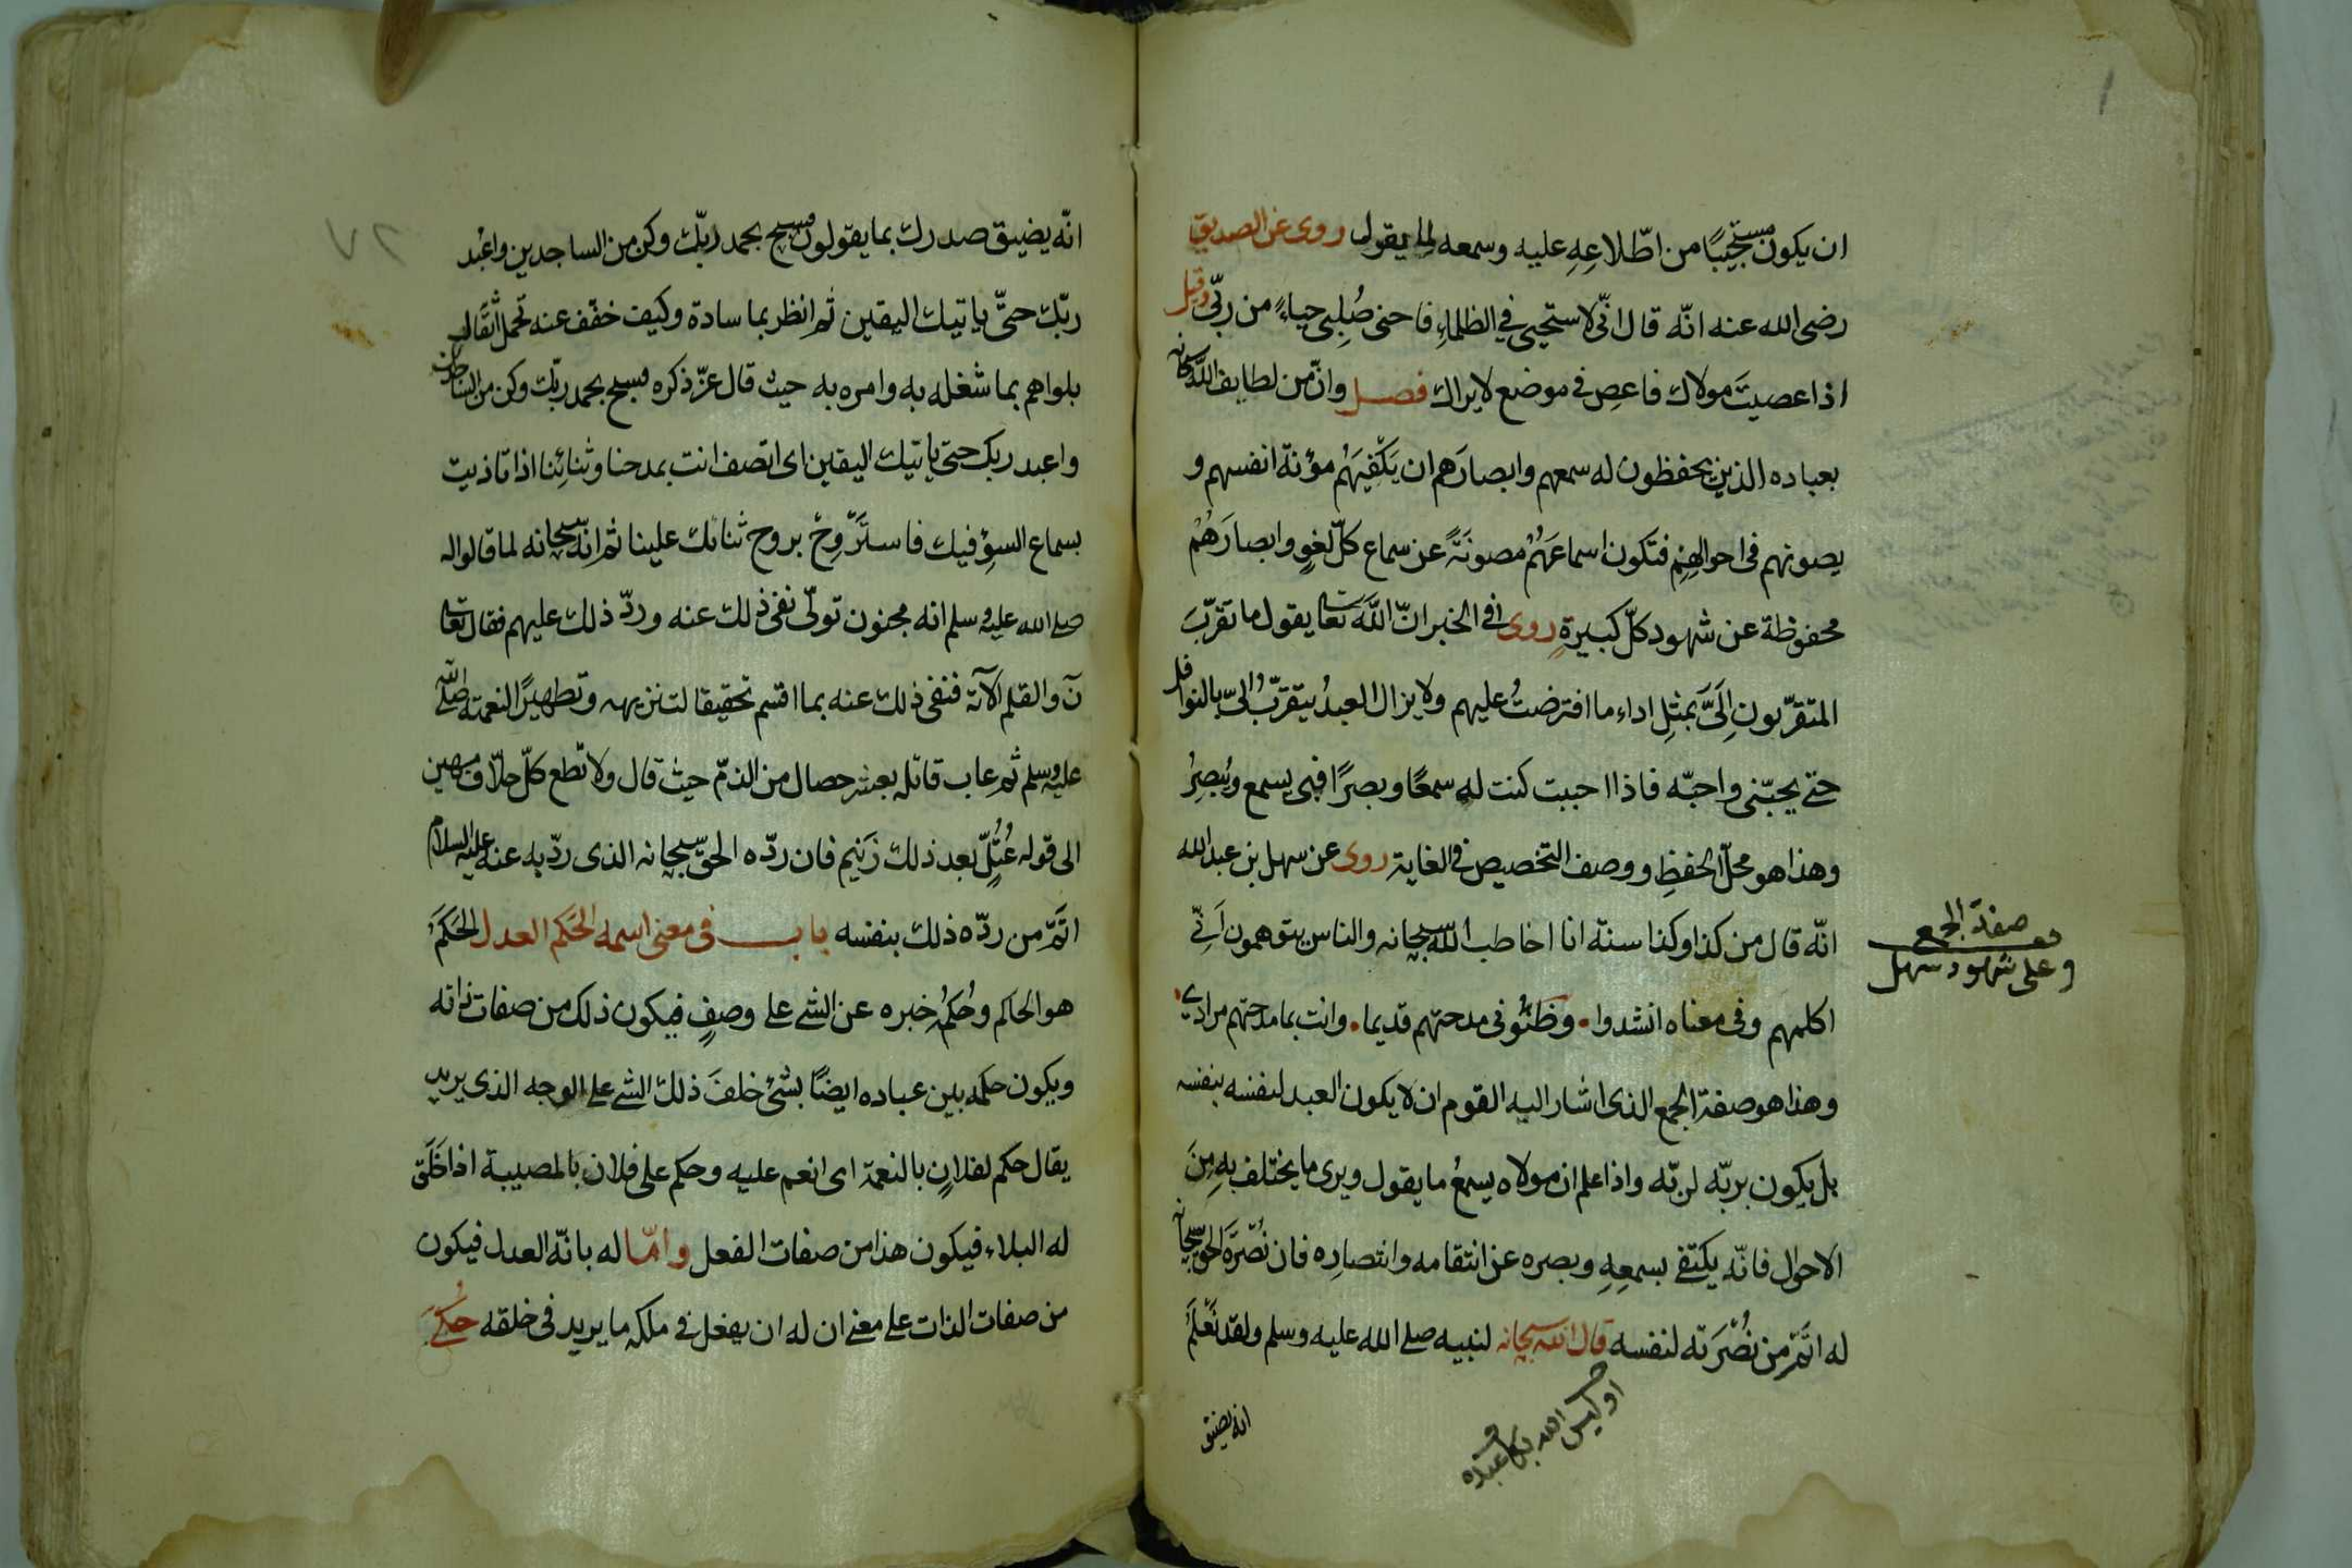 ان يكون مستحييًا من اطّلاعِهِ عليه وسمعه لما يقول روى عن الصديق
رضى الله عنه انّه قال انّى لاستحيى في الظلماءِ فاحنى صُلبِى حياءً من ربّى وقيل
اذا عصيتَ مولاك فاعصِ فى موضع لا يراك فصل وانّ من لطايف الله سبحانه
بعباده الذين يحفظون له سمعهم وابصارَهم ان يَكْفِيَهُم مؤنة انفسهم و
يصونهم فى احوالهِم فتكون اسماعَهُمْ مصونَةً عن سماع كلّ لغوٍ وابصارَهُمْ
محفوظة عن شهود كلّ كبيرةٍ روى فى الخبر انّ اللّٰه تعا يقول ما تقرّبَ
المتقرّبون اِلَىَّ بمثلِ اداءِ ما افترضتُ عليهم ولا يزال العبدُ يتقرّبُ الىّ بالنوافل
حتى يحبّنى واحبّه فاذا احببت كنت له سمعًا وبصرًا فبى يسمع ويُبصِرُ
وهذا هو محلّ الحفظِ ووصف التخصيص فى الغاية روى عن سهل بن عبد الله
انّه قال من كذا وكذا سنة انا اخاطب اللّٰه سبحانه والناس يتوهمون اَنّى
اكلمهم وفى معناه انشدوا • وظنُّونى مدحتهم قديما • وانت بما مدحتهم مرادى
وهذا هو صفة الجمع الذى اشار اليه القوم ان لا يكون العبد لنفسه بنفسه
بل يكون بربّه لربّه واذا علم ان مولاه يسمعُ ما يقول ويرى ما يختلف بهِ مِنَ
الاحوال فانّه يكتفى بسمعِهِ وبصره عن انتقامه وانتصارِه فان نُصْرَةَ الحق سبحانه
له اتَمّ من نُصْرَته لنفسه قال الله سبحانه لنبيه صلى الله عليه وسلم ولقد نَعْلَمُ
انه يضيق
اوليس الله بكاف عبده
صفة الجمع
وعلى شهود سهل
انّه يضيق صدرك بما يقولون فسبح بحمد ربّك وكن من الساجدين واعْبُد
ربّك حتىّ ياتيك اليقين ثم انظر بما سادة وكيف خفّف عنه تحمل اثْقال
بلواهم بما شغله به وامره به حيث قال عزّ ذكره فسبح بحمد ربّك وكن من الساجدين
واعبد ربك حتى ياتيك اليقين اى اتصف انت بمدحنا وثنائنا اذا تاذيت
بسماع السوء فيك فاستَرْوِحْ بروح ثنائك علينا ثم انّه سبحانه لما قالوا له
صلى الله عليه وسلم انه مجنون تولّى نفى ذلك عنه وردّ ذلك عليهم فقال تعا
نٓ والقلم الآية فنفى ذلك عنه بما اقسم تحقيقا لتنزيهه وتطهيرًا لنعمته صلى الله
عليه وسلم ثم عاب قائله بعشر خصال من الذمّ حيث قال ولا تطع كلّ حلّاف مهين
الى قوله عُتُلّ بعد ذلك زَنيم فان ردّه الحق سبحانه الذى ردّ به عنه عليه السلام
اتَمّ من ردّه ذلك بنفسه باب فى معنى اسمه الحَكم العدل الحَكَمُ
هو الحاكم وحُكمُه خبره عن الشئ على وصفٍ فيكون ذلك من صفات ذاته
ويكون حكمه بين عباده ايضًا بشئ خلفَ ذلك الشئ على الوجه الذى يريد
يقال حكم لفلانٍ بالنعمة اى انعم عليه وحكم على فلان بالمصيبة اذا خَلَقَ
له البلاء فيكون هذا من صفات الفعل وامّا له بانّه العدل فيكون
من صفات الذات على معنى ان له ان يفعل فى ملكه ما يريد فى خلقه حُكِىَ